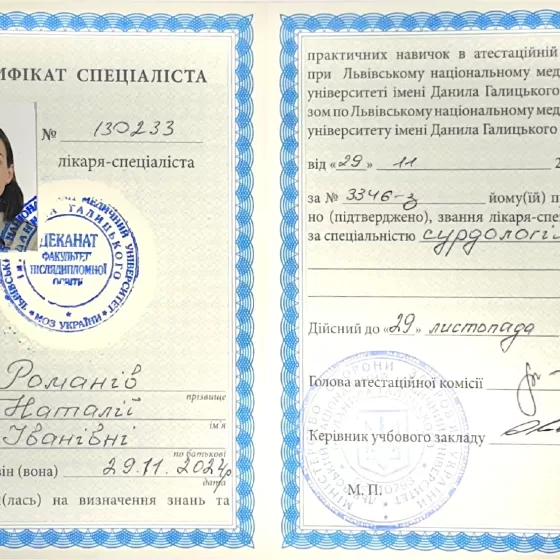 ИФІКАТ СПЕЦІАЛІСТА
№ 130233
лікаря-спеціаліста
ДЕКАНАТ
ФАКУЛЬТЕТ
ПІСЛЯДИПЛОМНОЇ
ОСВІТИ
МОЗ УКРАЇНИ
Романів
прізвище
Наталії
ім'я
Іванівні
по батькові
він (вона) 29.11.2024р
дата
(лась) на визначення знань та
практичних навичок в атестаційній
при Львівському національному мед
університеті імені Данила Галицького
зом по Львівському національному мед
університету імені Данила Галицького
від «29» 11 2
за № 3346-з йому(їй) п
но (підтверджено), звання лікаря-спе
за спеціальністю сурдологія
Дійсний до «29» листопада
Голова атестаційної комісії
Керівник учбового закладу
М. П.